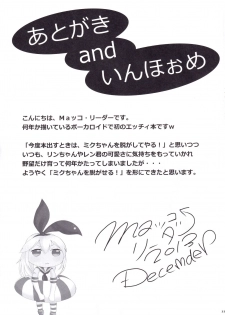 あとがき
and
いんほぉめ
こんにちは、Mаッコ・リーダーです。
何年か描いているボーカロイドで初のエッチィ本ですw
「今度本出すときは、ミクちゃんを脱がしてやる！」と思いつつ
いつも、リンちゃんやレン君の可愛さに気持ちをもっていかれ
野望だけ育って何年かたってしまいましたが・・・
ようやく「ミクちゃんを脱がせる！」を形にできたと思います。
Maッコ
リーダー
2013
December